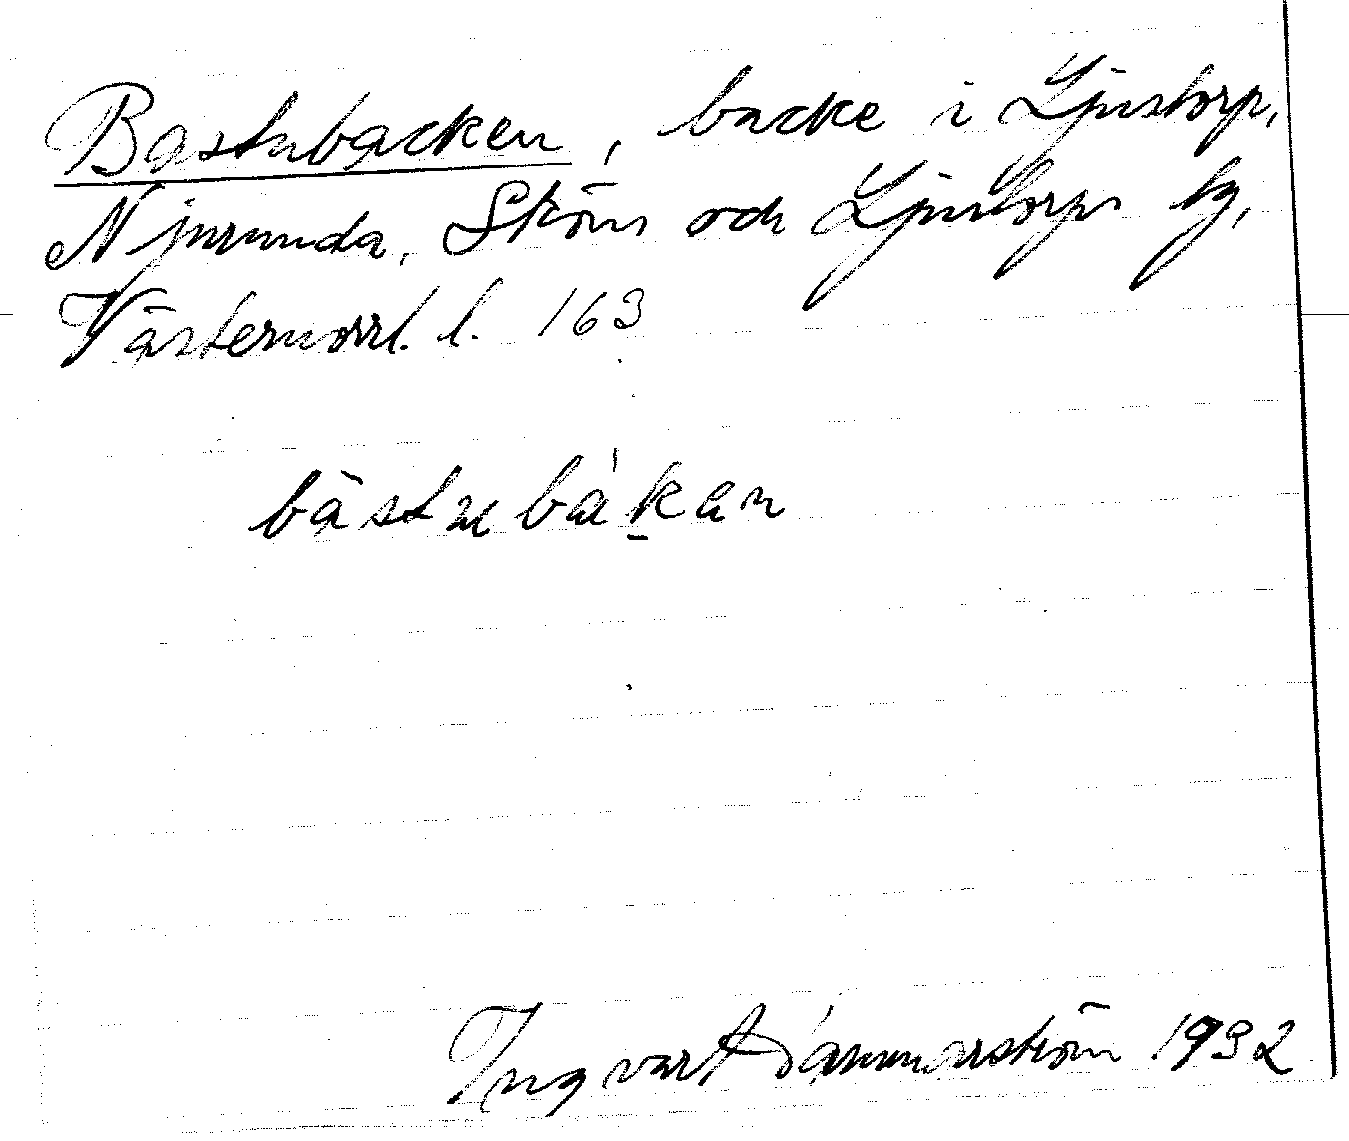 Bastubacken, backe i Ljustorp,
Njurunda, Sköns och Ljustorps tg,
Västernorrl. l. 163
bästu bàkan
Ingvar 1932